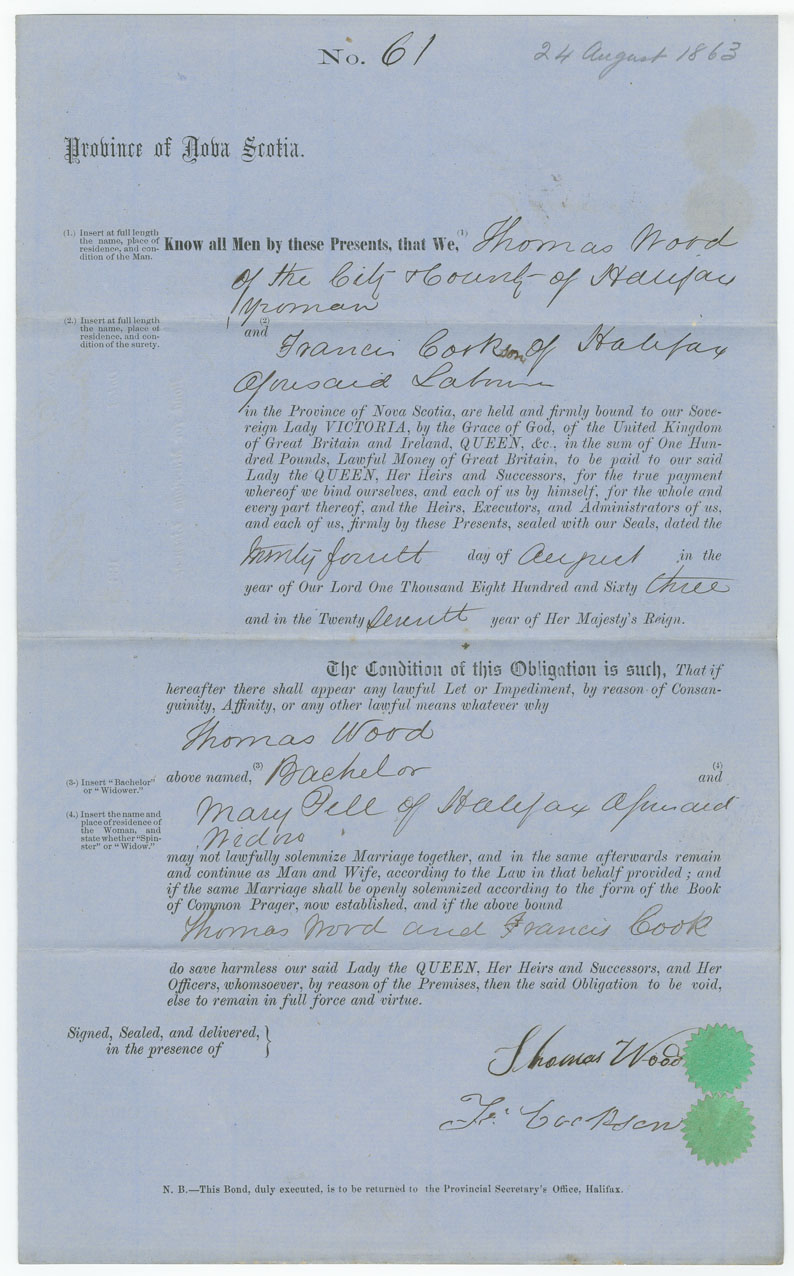 No. 61
24 August 1863
Province of Nova Scotia.
(1.) Insert at full length
the name, place of
residence, and con-
dition of the Man.
Know all Men by these Presents, that We,(1) Thomas Wood
of the City & County of Halifax
yeoman
(2.) Insert at full length
the name, place of
residence, and con-
dition of the surety.
and(2)
Francis Cookson of Halifax
aforesaid Labourer
in the Province of Nova Scotia, are held and firmly bound to our Sove-
reign Lady VICTORIA, by the Grace of God, of the United Kingdom
of Great Britain and Ireland, QUEEN, &c., in the sum of One Hun-
dred Pounds, Lawful Money of Great Britain, to be paid to our said
Lady the QUEEN, Her Heirs and Successors, for the true payment
whereof we bind ourselves, and each of us by himself, for the whole and
every part thereof, and the Heirs, Executors, and Administrators of us,
and each of us, firmly by these Presents, sealed with our Seals, dated the
twenty fourth day of August in the
year of Our Lord One Thousand Eight Hundred and Sixty three
and in the Twenty seventh year of Her Majesty's Reign.
The Condition of this Obligation is such, That if
hereafter there shall appear any lawful Let or Impediment, by reason of Consan-
guinity, Affinity, or any other lawful means whatever why
Thomas Wood
(3.) Insert "Bachelor"
or "Widower."
above named,(3) Bachelor and(4)
(4.) Insert the name and
place of residence of
the Woman, and
state whether "Spin-
ster" or "Widow."
Mary Pell of Halifax aforesaid
Widow
may not lawfully solemnize Marriage together, and in the same afterwards remain
and continue as Man and Wife, according to the Law in that behalf provided; and
if the same Marriage shall be openly solemnized according to the form of the Book
of Common Prager, now established, and if the above bound
Thomas Wood and Francis Cook
do save harmless our said Lady the QUEEN, Her Heirs and Successors, and Her
Officers, whomsoever, by reason of the Premises, then the said Obligation to be void,
else to remain in full force and virtue.
Signed, Sealed, and delivered,
in the presence of
Thomas Wood
Fr. Cookson
N. B.—This Bond, duly executed, is to be returned to the Provincial Secretary's Office, Halifax.